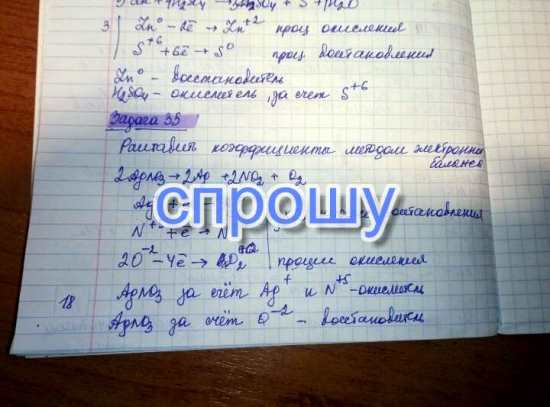 3Zn + 4H₂SO₄ → 3ZnSO₄ + S + 4H₂O
3 | Zn⁰ - 2ē → Zn⁺² проц окисления
S⁺⁶ + 6ē → S⁰ проц восстановления
Zn⁰ - восстановитель
H₂SO₄ - окислитель, за счет S⁺⁶
Задача 35
Раставить коэффициенты методом электронного баланса
2AgNO₃ → 2Ag + 2NO₂ + O₂
Ag
спрошу
восстановления
N + ē → N
2O⁻² - 4ē → O₂ процесс окисления
AgNO₃ за счёт Ag⁺ и N⁺⁵ - окислитель
18
AgNO₃ за счёт O⁻² - восстановитель